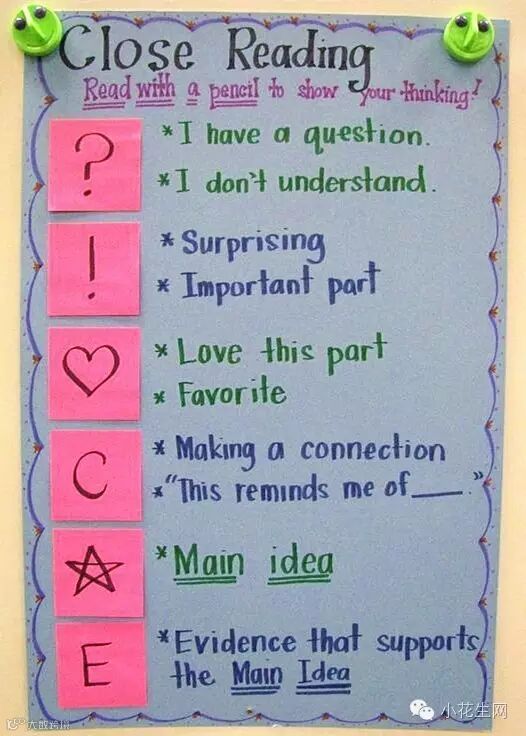 Close Reading
Read with a pencil to show your thinking!
?
* I have a question.
* I don't understand.
!
* Surprising
* Important part
* Love this part
* Favorite
C
* Making a connection
* "This reminds me of ____."
* Main idea
E
* Evidence that supports
the Main Idea
小花生网
大数跨境